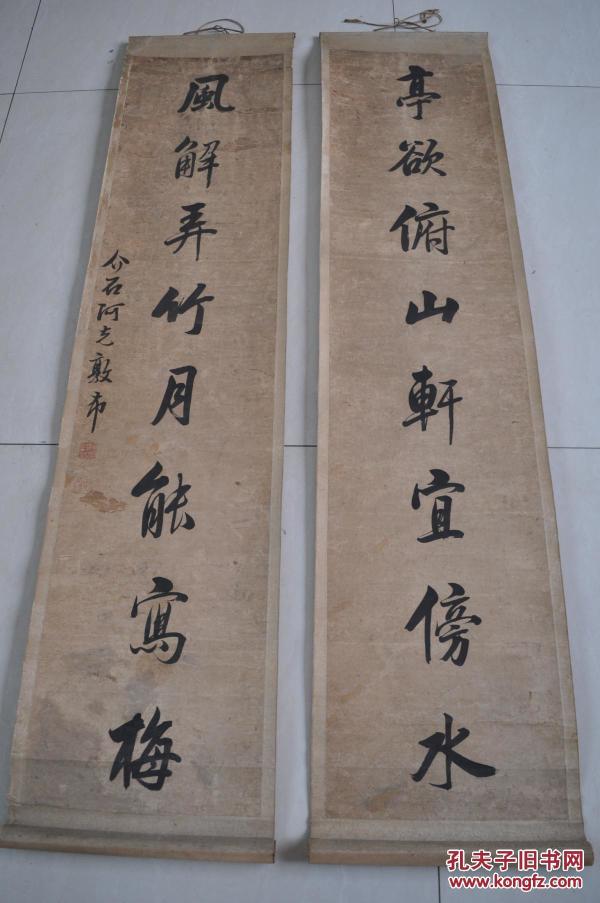 亭欲俯山軒宜傍水
風解弄竹月能寫梅
介石阿克敦布
孔夫子旧书网
www.kongfz.com